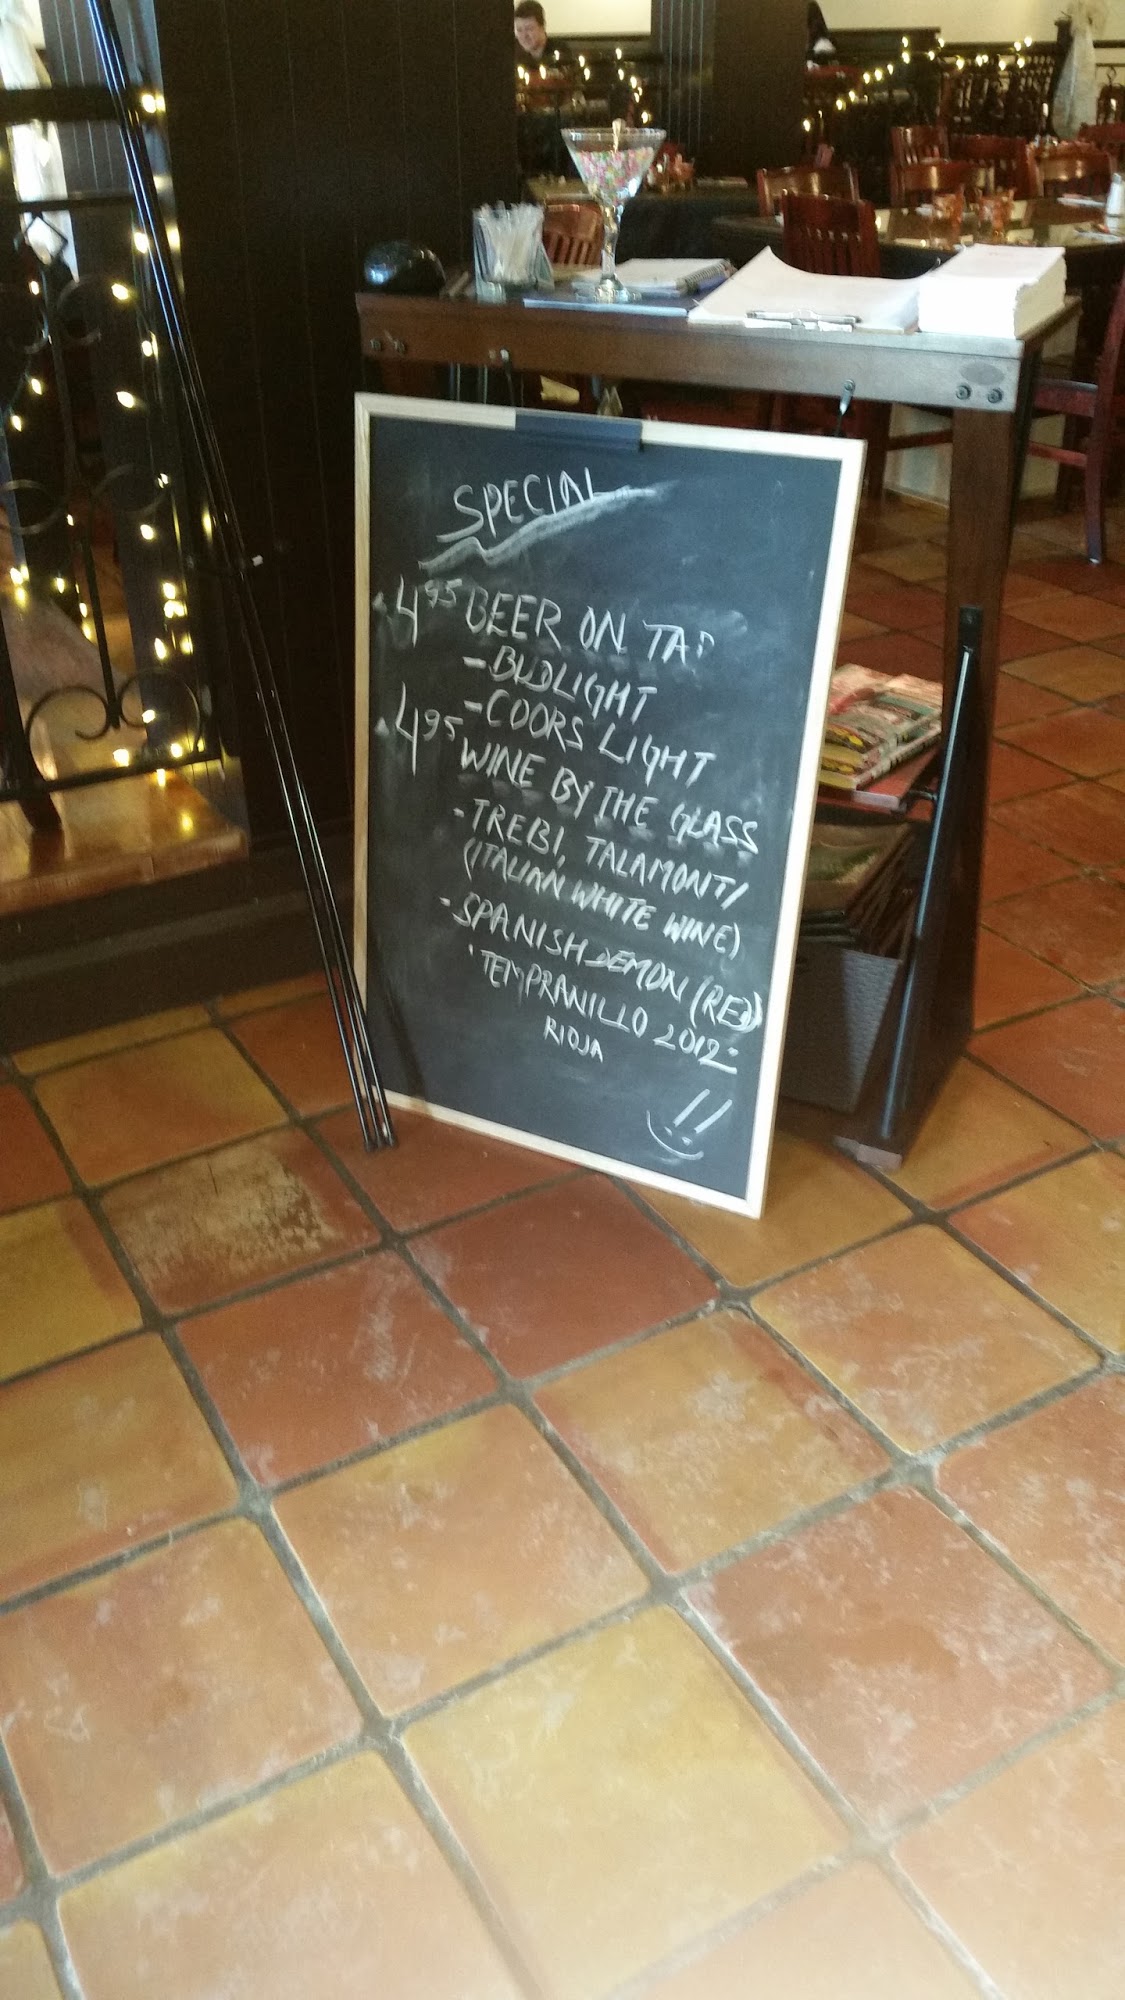 SPECIAL
$4.95 BEER ON TAP
- BUDLIGHT
- COORS LIGHT
$4.95 WINE BY THE GLASS
- TREBI, TALAMONTI
(ITALIAN WHITE WINE)
- SPANISH DEMON (RED)
'TEMPRANILLO 2012
RIOJA